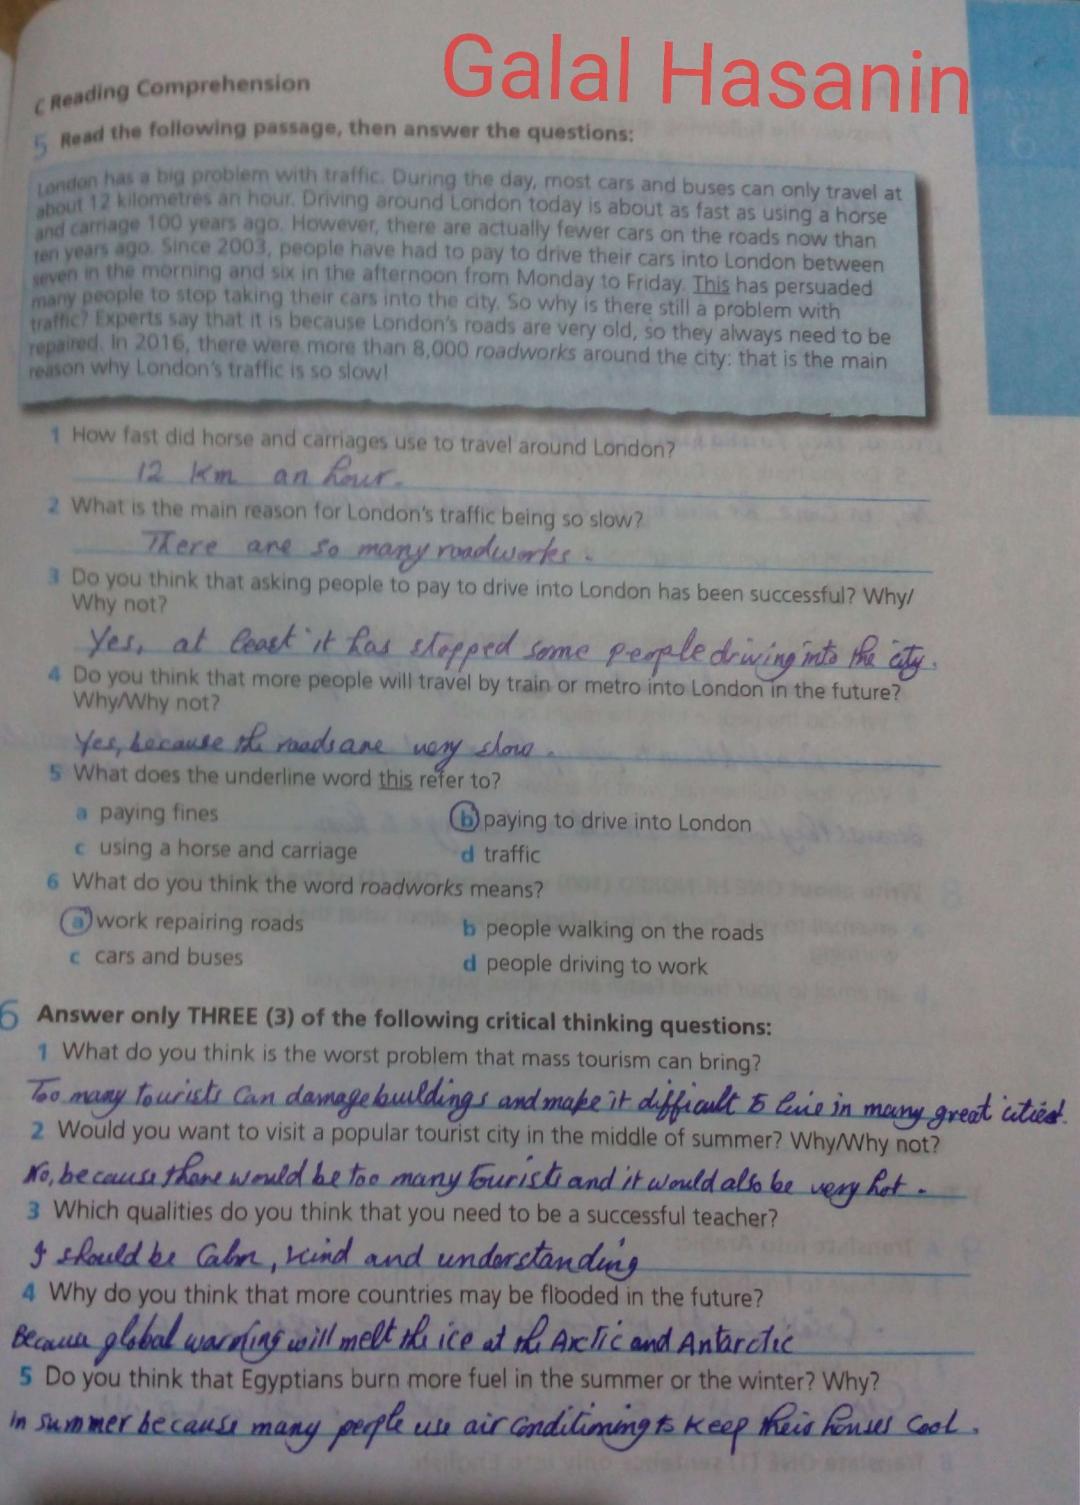 Galal Hasanin
C Reading Comprehension
5 Read the following passage, then answer the questions:
London has a big problem with traffic. During the day, most cars and buses can only travel at
about 12 kilometres an hour. Driving around London today is about as fast as using a horse
and carriage 100 years ago. However, there are actually fewer cars on the roads now than
ten years ago. Since 2003, people have had to pay to drive their cars into London between
seven in the morning and six in the afternoon from Monday to Friday. This has persuaded
many people to stop taking their cars into the city. So why is there still a problem with
traffic? Experts say that it is because London's roads are very old, so they always need to be
repaired. In 2016, there were more than 8,000 roadworks around the city: that is the main
reason why London's traffic is so slow!
1 How fast did horse and carriages use to travel around London?
12 Km an hour.
2 What is the main reason for London's traffic being so slow?
There are so many roadworks.
3 Do you think that asking people to pay to drive into London has been successful? Why/
Why not?
Yes, at least it has stopped some people driving into the city.
4 Do you think that more people will travel by train or metro into London in the future?
Why/Why not?
Yes, because the roads are very slow.
5 What does the underline word this refer to?
a paying fines
b paying to drive into London
c using a horse and carriage
d traffic
6 What do you think the word roadworks means?
a work repairing roads
b people walking on the roads
c cars and buses
d people driving to work
6 Answer only THREE (3) of the following critical thinking questions:
1 What do you think is the worst problem that mass tourism can bring?
Too many tourists can damage buildings and make it difficult to live in many great cities.
2 Would you want to visit a popular tourist city in the middle of summer? Why/Why not?
No, because there would be too many tourists and it would also be very hot.
3 Which qualities do you think that you need to be a successful teacher?
I should be calm, kind and understanding
4 Why do you think that more countries may be flooded in the future?
Because global warming will melt the ice at the Arctic and Antarctic
5 Do you think that Egyptians burn more fuel in the summer or the winter? Why?
In summer because many people use air conditioning to keep their houses cool.